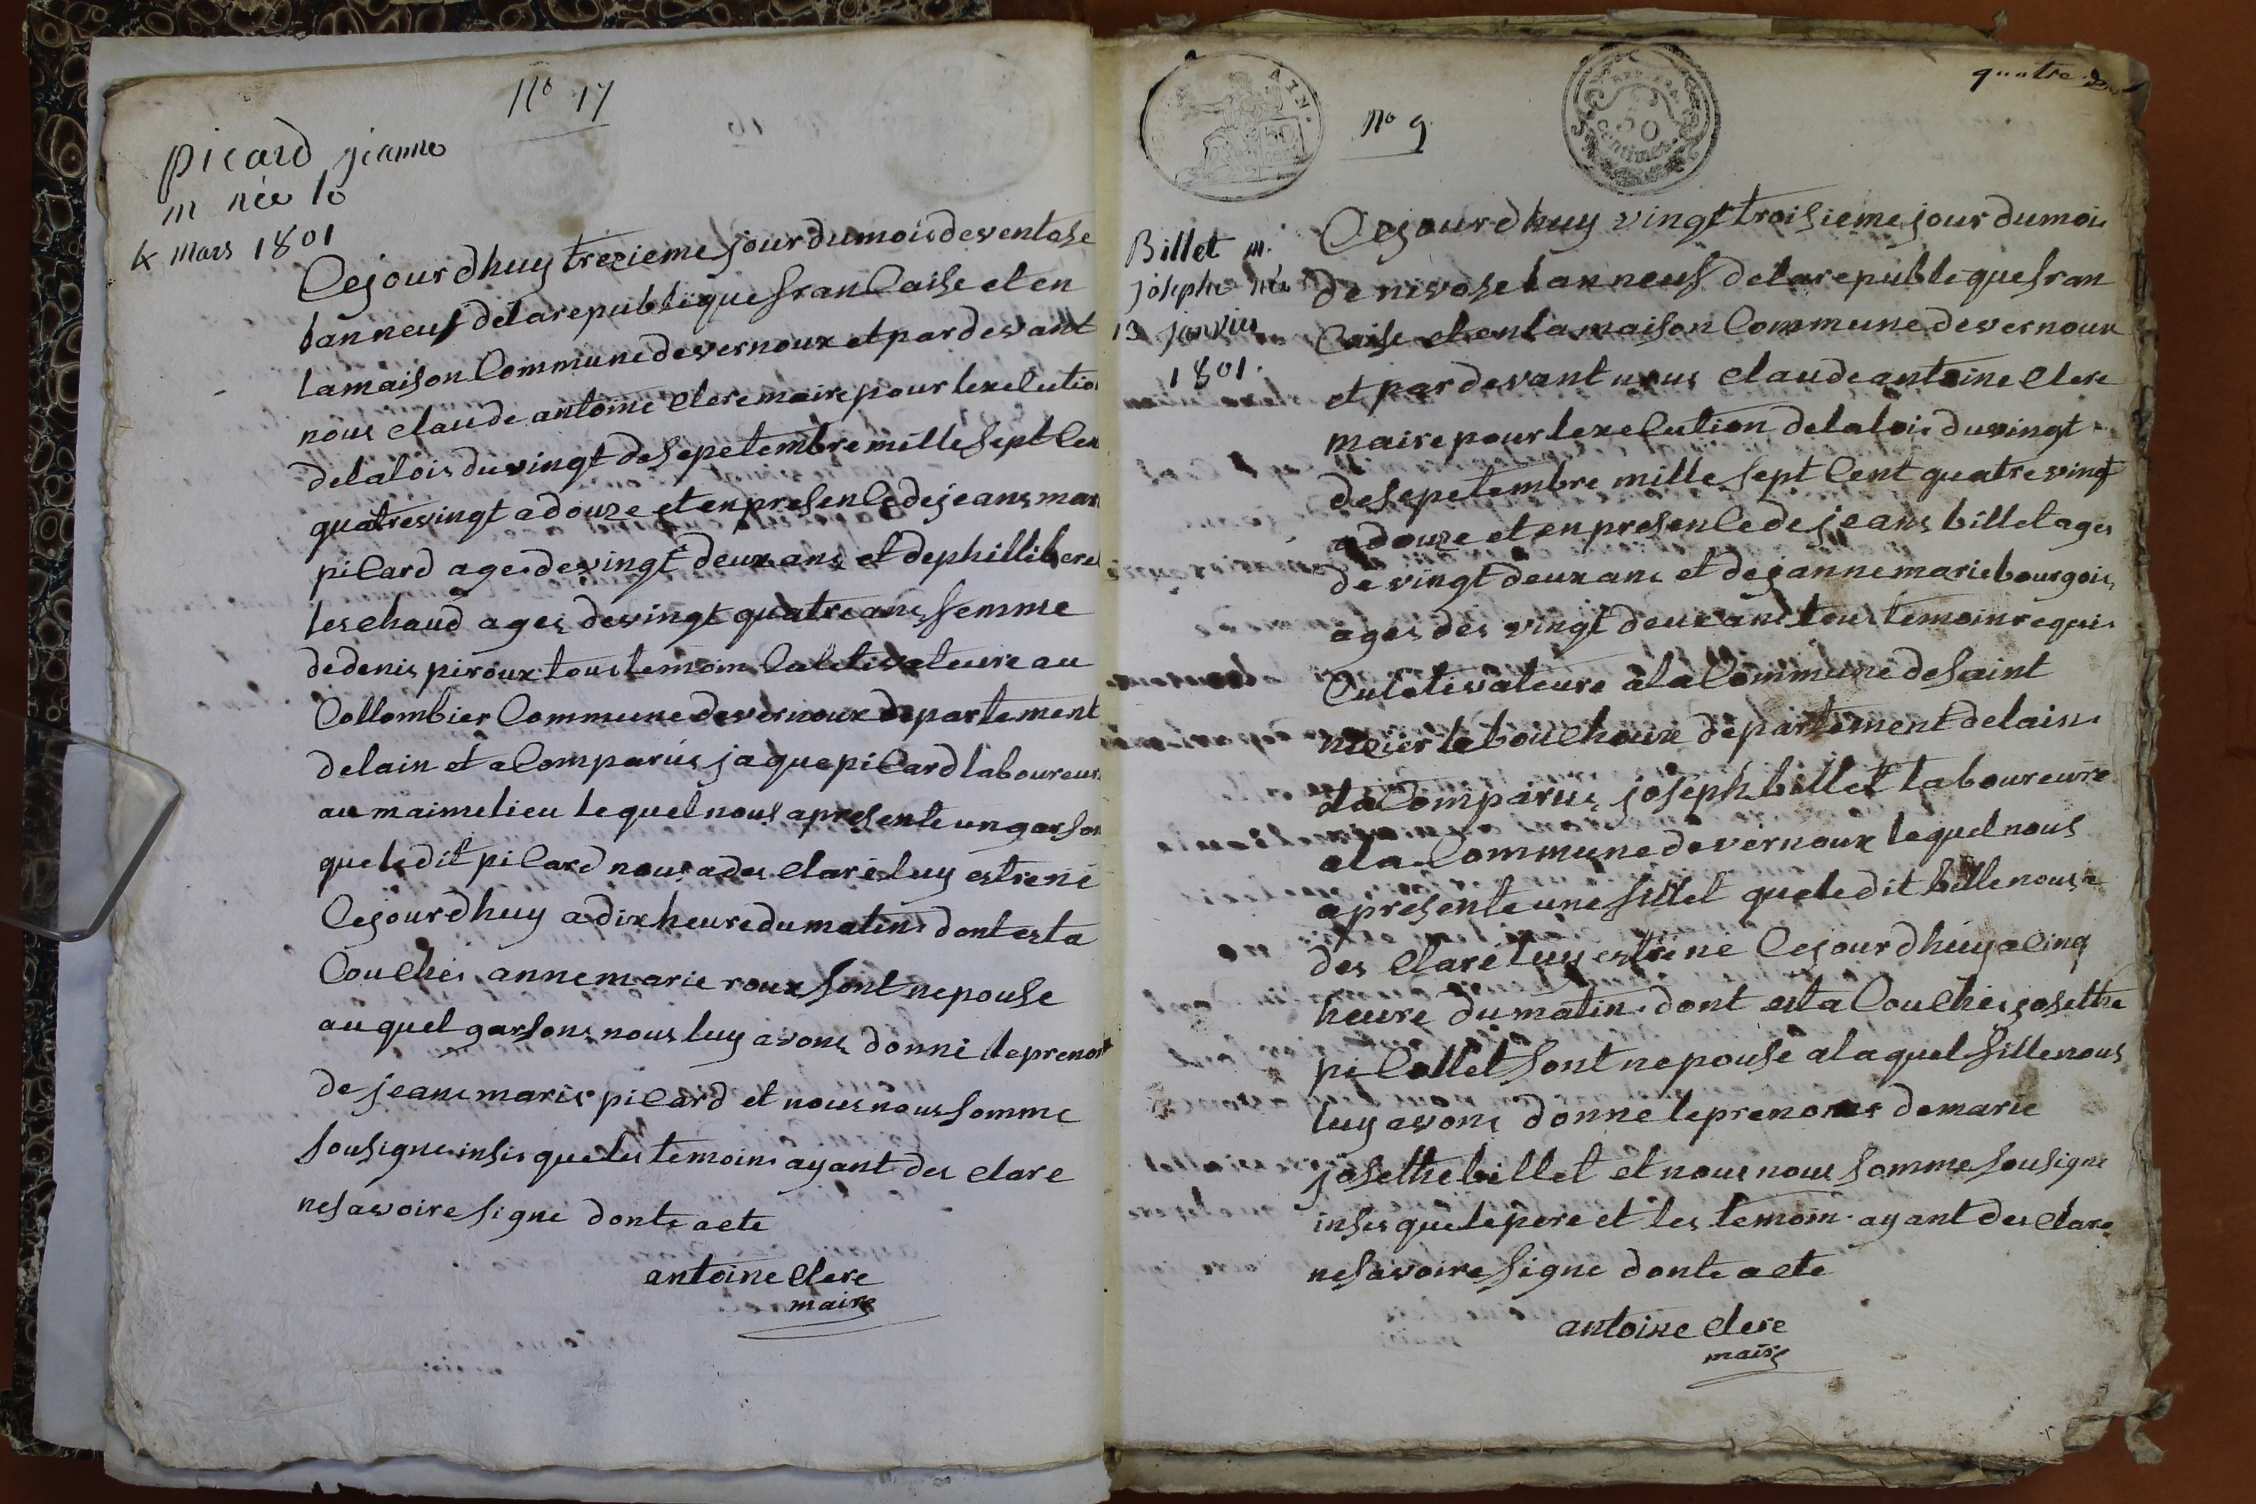 No 17
picard jeanne
m née le
4 mars 1801
Cejourdhuy trezieme jour du mois de ventose
lan neuf delarepublique franCaise et en
lamaison Commune devernoux et pardevant
nous claude antoine clere maire pour lexeCution
delalois duvingt desepetembre mille sept Cen
quatrevingt adouze et en presenCe dejeans mari
piCard ages devingt deux ans et dephillibere
leschaud ages devingt quatre ans femme
dedenis piroux tous temoin Culetivateure au
Collombier Commune devernoux departement
delain et aComparus jaque piCard laboureur
au maime lieu lequel nous apresente un garson
queledit piCard nous a des claré luy estre né
Cejourdhuy a dix heure du matin dont esta
Couchés anne marie roux sont nepouse
auquel garsons nous luy avons donné leprenom
de jeans marie piCard et nous nous somme
sousigne insis queles temoins ayant des clare
nesavoire signe donte acte
antoine clere
maire
AIN.
50
No 9
REP. FRA.
50
Centimes
quatre
Billet m.
josephe née
13 janvier
1801.
Cejourdhuy vingt troisieme jour dumois
de nivose lan neuf delarepublique fran
Caise et en lamaison Commune devernoux
et pardevant nous claude antoine clere
maire pour lexeCution delalois duvingt
desepetembre mille sept Cent quatre vingt
adouze et en presenCe de jeans billet ages
de vingt deux ans et dejanne marie bourgois
ages des vingt deux ans tous temoin requis
Culetivateure alaCommune desaint
nizier lebouchoux departement delain
etaComparus joseph billet laboureure
ala Commune devernoux lequel nous
apresente une fillet queledit bille nous a
des claré luy estre né Cejourdhuy a Cinq
heure du matin dont esta Couchés josethe
piCollet sont nepouse alaquel fille nous
luy avons donne leprenoms demarie
josethe billet et nous nous somme sousigne
insis quelepere et les temoin ayant des clare
nesavoire signe donte acte
antoine clere
maire